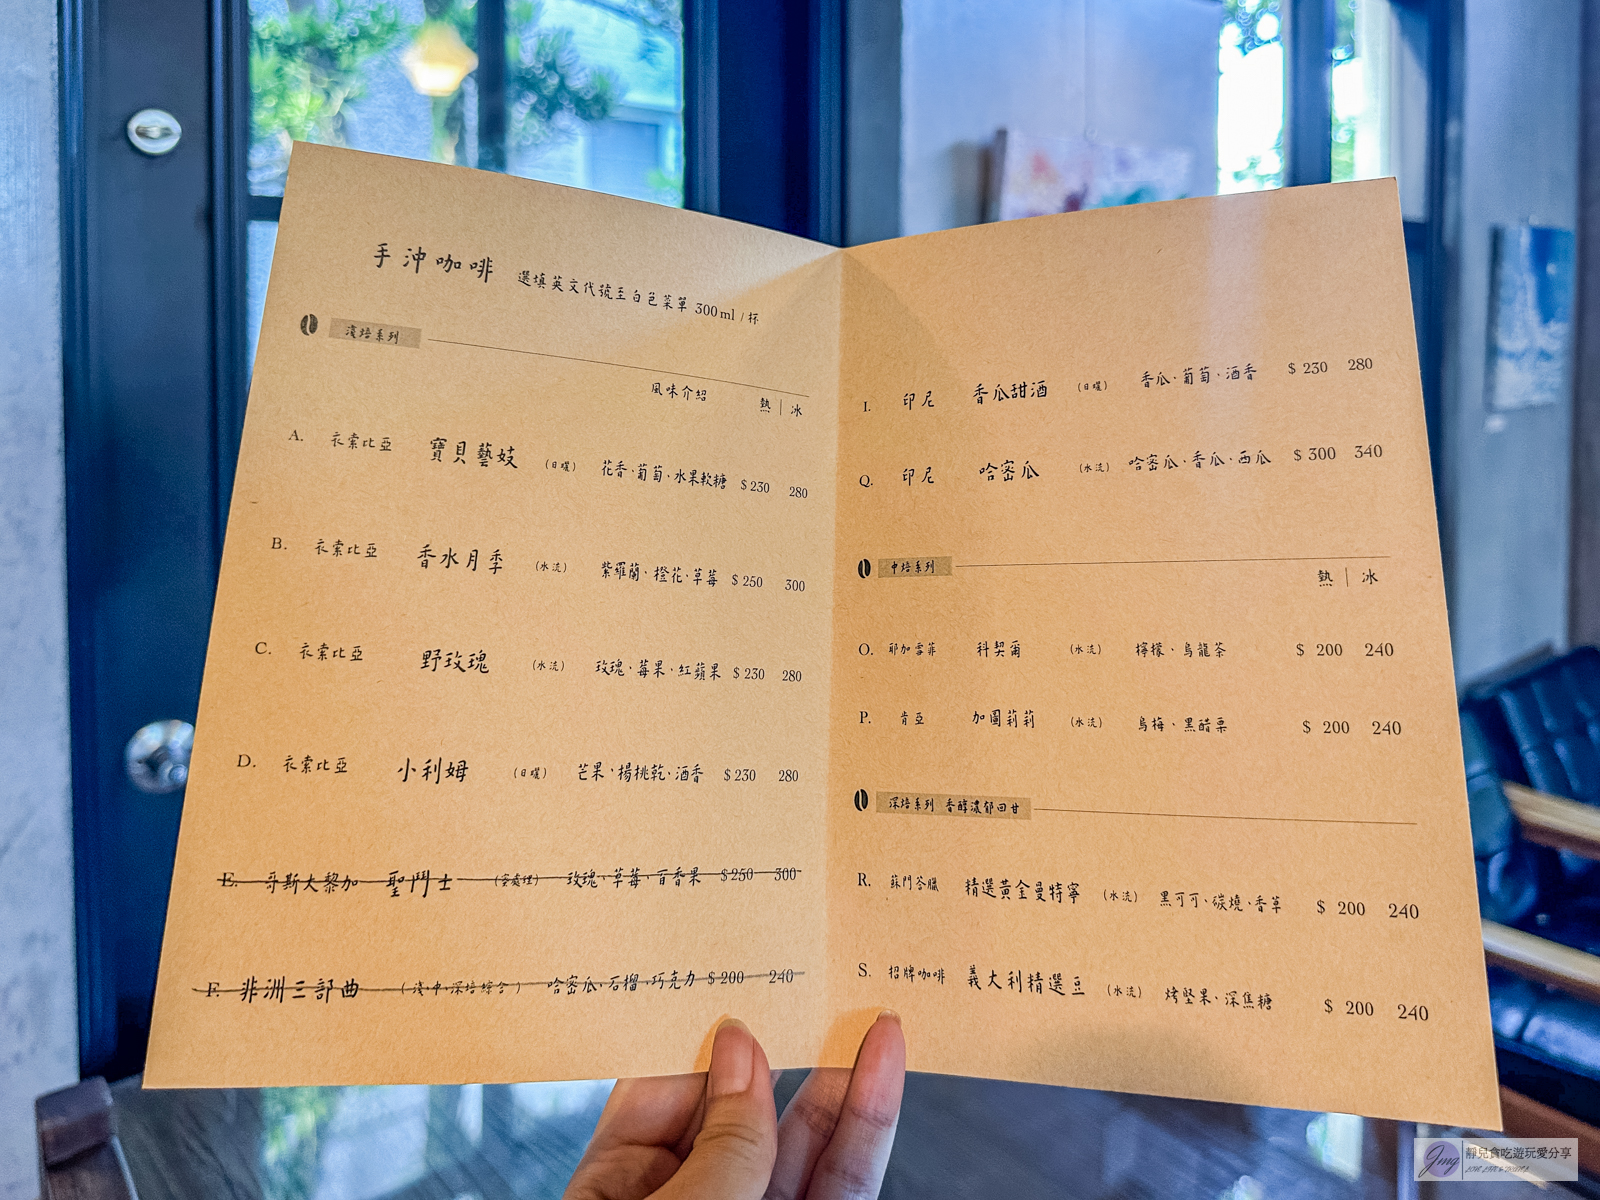 手沖咖啡 選填英文代號至白色菜單 300ml / 杯
淺焙系列
風味介紹 熱 | 冰
A. 衣索比亞 寶貝藝妓 (日曬) 花香、葡萄、水果軟糖 $230 280
B. 衣索比亞 香水月季 (水洗) 紫羅蘭、橙花、草莓 $250 300
C. 衣索比亞 野玫瑰 (水洗) 玫瑰、莓果、紅蘋果 $230 280
D. 衣索比亞 小利姆 (日曬) 芒果、楊桃乾、酒香 $230 280
E. 哥斯大黎加 聖鬥士 (蜜處理) 玫瑰、草莓、百香果 $250 300
F. 非洲三部曲 (淺、中、深焙綜合) 哈密瓜、石榴、巧克力 $200 240
I. 印尼 香瓜甜酒 (日曬) 香瓜、葡萄、酒香 $230 280
Q. 印尼 哈密瓜 (水洗) 哈密瓜、香瓜、西瓜 $300 340
中焙系列
熱 | 冰
O. 耶加雪菲 科契爾 (水洗) 檸檬、烏龍茶 $ 200 240
P. 肯亞 加圖莉莉 (水洗) 烏梅、黑醋栗 $ 200 240
深焙系列 香醇濃郁回甘
R. 蘇門答臘 精選黃金曼特寧 (水洗) 黑可可、碳燒、香草 $ 200 240
S. 招牌咖啡 義大利精選豆 (水洗) 烤堅果、深焦糖 $ 200 240
Jing 靜兒貪吃遊玩愛分享